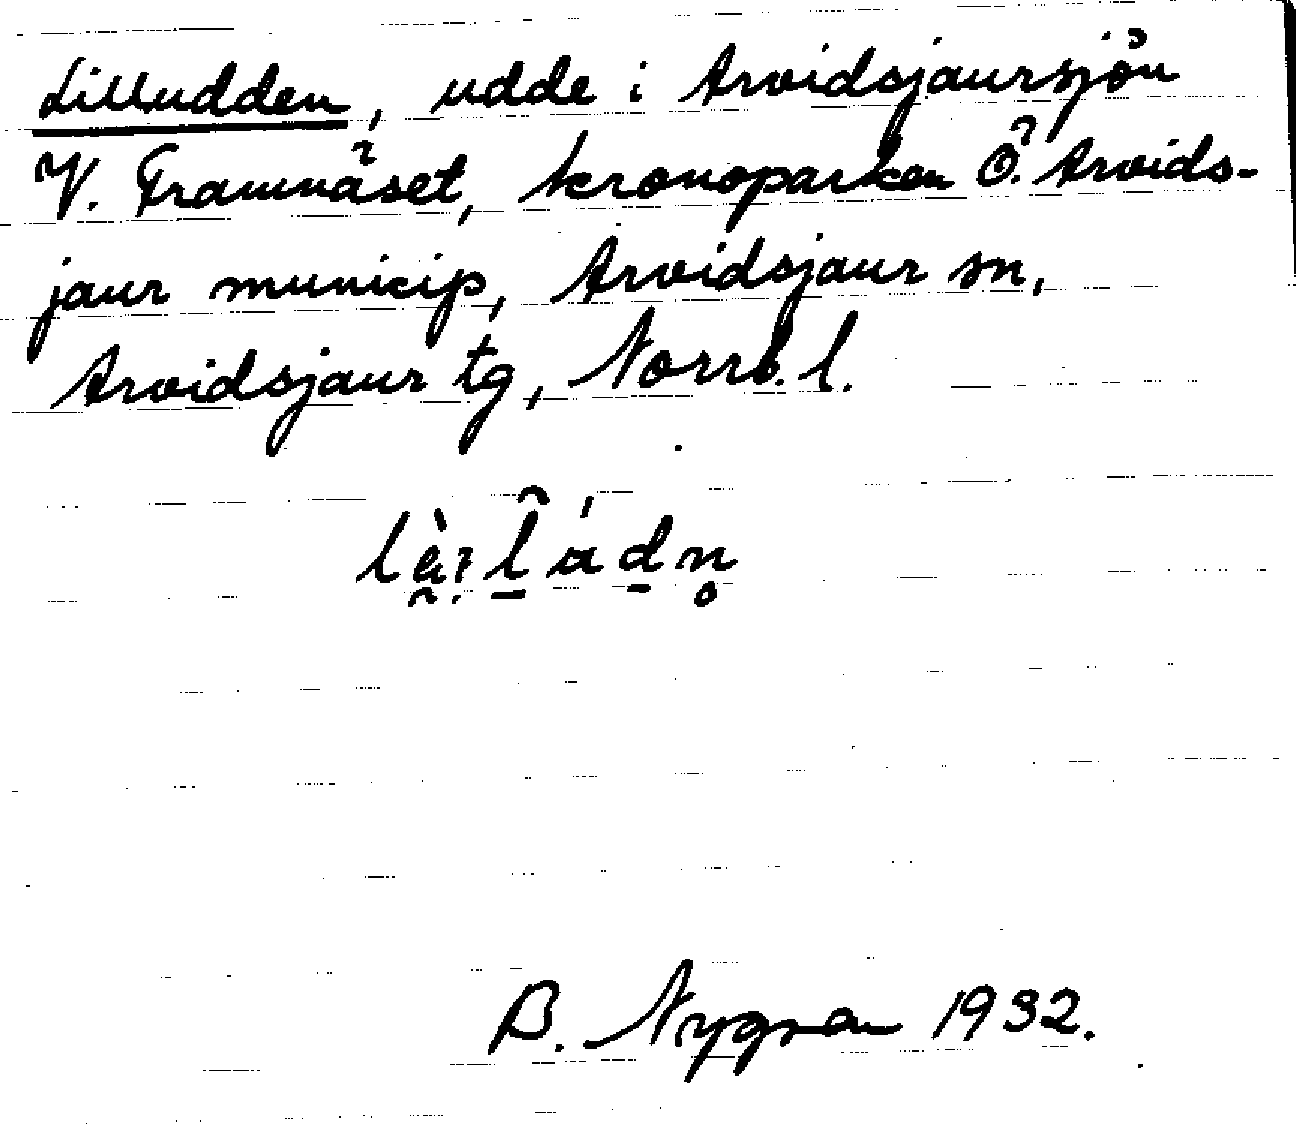 Lilludden, udde i Arvidsjaursjön
V. Framnäset, kronoparken Ö. Arvids-
jaur municip, Arvidsjaur sn,
Arvidsjaur tg, Norrb. l.
B. Nygren 1932.